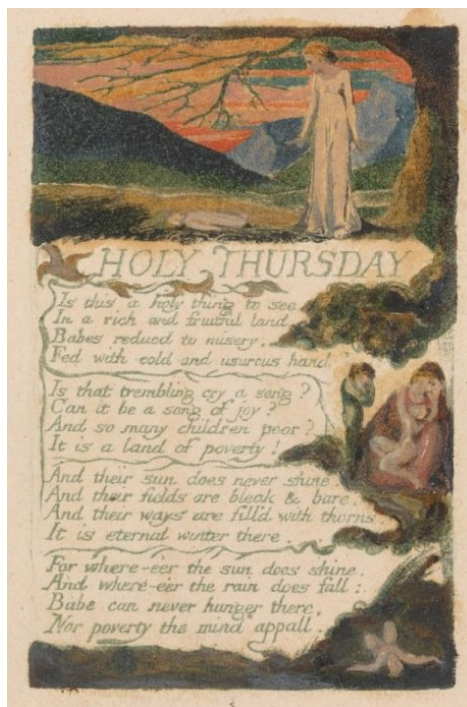 HOLY THURSDAY
Is this a holy thing to see.
In a rich and fruitful land.
Babes reducd to misery.
Fed with cold and usurous hand?
Is that trembling cry a song?
Can it be a song of joy?
And so many children poor?
It is a land of poverty!
And their sun does never shine.
And their fields are bleak & bare.
And their ways are fill'd with thorns
It is eternal winter there.
For where-e'er the sun does shine.
And where-e'er the rain does fall:
Babe can never hunger there,
Nor poverty the mind appall.